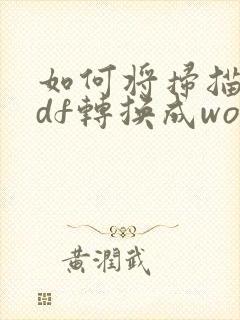 如何将掃描
df轉換成wo
黃潤武